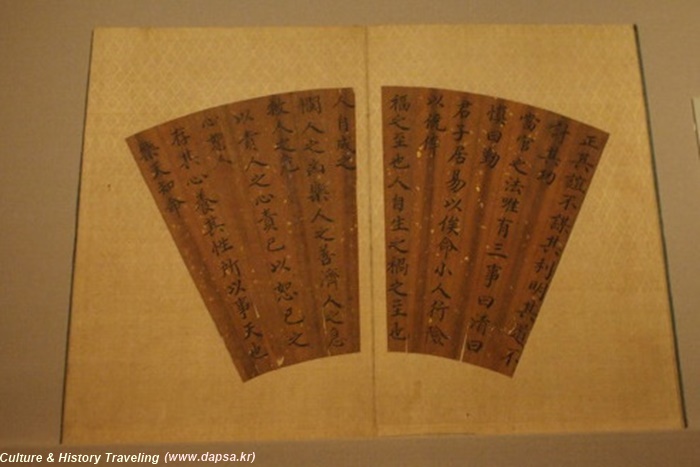 正其誼不謀其利明其道不
計其功
當官之法唯有三事曰清曰
慎曰勤
君子居易以俟命小人行險
以僥倖
福之至也人自生之禍之至也
人自成之
憫人之凶樂人之善濟人之急
救人之危
以責人之心責己以恕己之
心恕人
存其心養其性所以事天也
樂天知命
Culture & History Traveling (www.dapsa.kr)